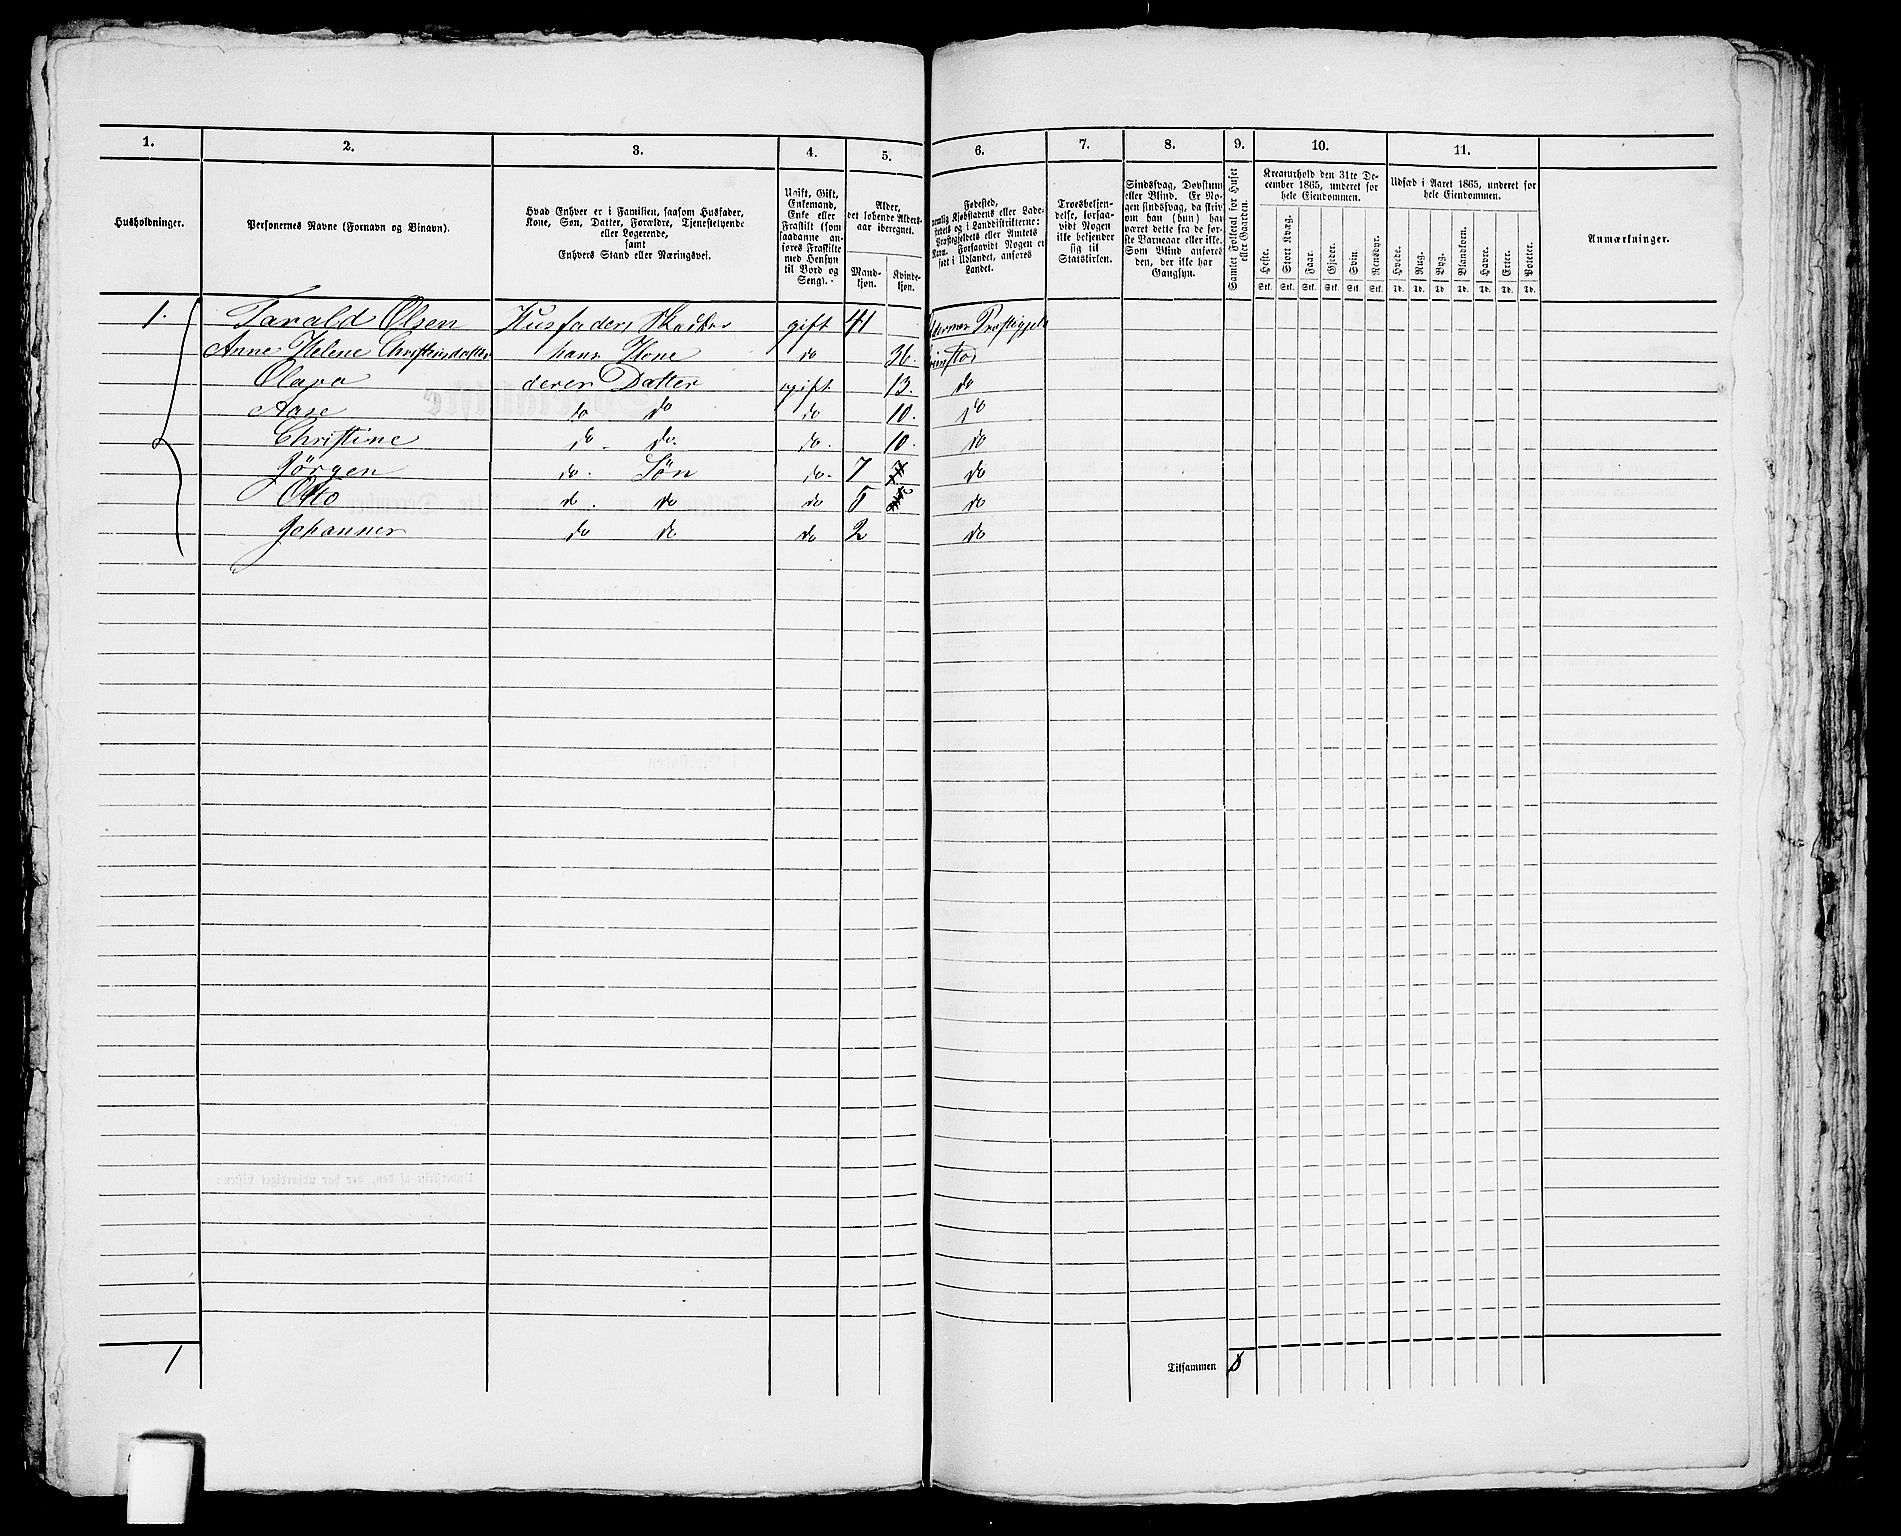 1. 2. 3. 4. 5. 6. 7. 8. 9. 10. 11.
Husholdninger.
Personernes Navne (Fornavn og Binavn).
Hvad Enhver er i Familien, saasom Husfader,
Kone, Søn, Datter, Forældre, Tjenestetyende
eller Logerende,
samt
Enhvers Stand eller Næringsvei.
Ugift, Gift,
Enkemand,
Enke eller
Fraskilt (som
saadanne an-
føres Fraskilte
med Hensyn
til Bord og
Seng).
Alder,
det løbende Alders-
aar iberegnet.
Mand-
kjøn.
Kvinde-
kjøn.
Fødested,
nemlig Kjøbstadens eller Lade-
stedets og i Landdistrikterne:
Præstegjeldets eller Amtets
Navn. Forsaavidt Nogen er
født i Udlandet, anføres
Landet.
Troesbekjen-
delse, forsaa-
vidt Nogen
ikke bekjender
sig til
Statskirken.
Sindssvag, Døvstum
eller Blind. Er No-
gen sindssvag, da skriv
om han (hun) har
været dette fra de før-
ste Barneaar eller ikke.
Som Blind anføres
den, der ikke har
Gangsyn.
Samlet Folketal for Huset
eller Gaarden.
Kreaturhold den 31te De-
cember 1865, underet for
hele Eiendommen.
Heste. Stort Kvæg. Faar. Gjeder. Svin. Rensdyr.
Stk. Stk. Stk. Stk. Stk. Stk.
Udsæd i Aaret 1865, underet for
hele Eiendommen.
Hvede. Rug. Byg. Blandkorn. Havre. Erter. Poteter.
Td. Td. Td. Td. Td. Td. Td.
Anmærkninger.
1. Tarald Olsen Husfader gift 41
Anne Helene Christensdatter hans Kone do 36.
Olava deres Datter ugift 13. do
Aase do do do 10. do
Christine do do. do. 10. do
Jörgen do. Sön do. 7 7 do
Otto do. do do 5 do
Johannes do do do 2 do
1
Tilsammen 8